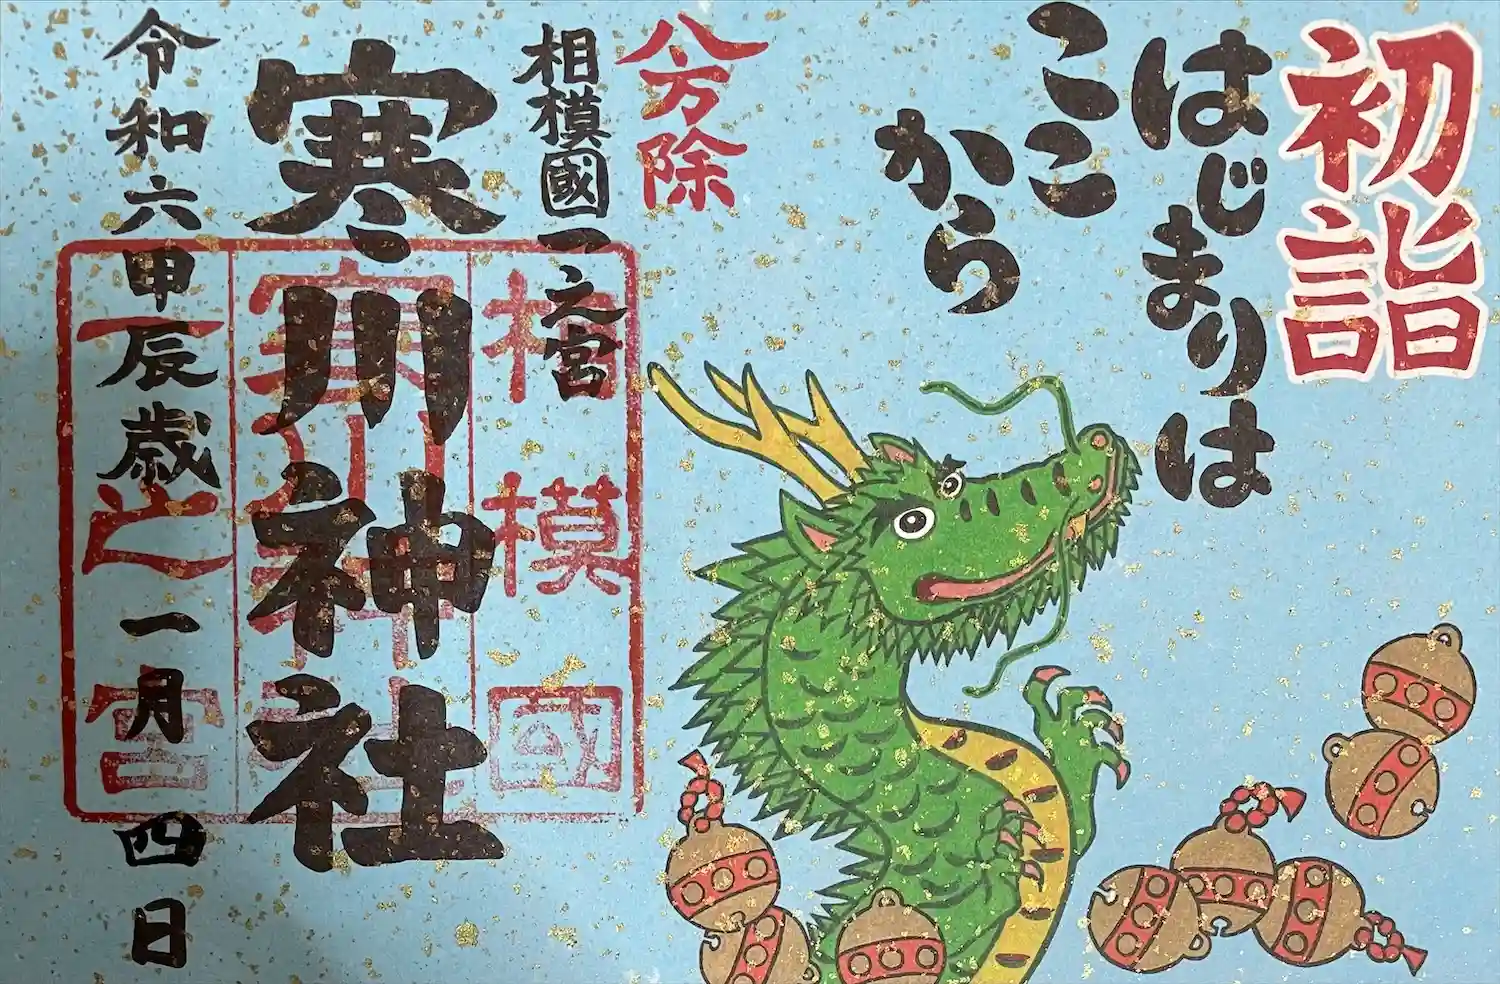 初詣
はじまりは
ここ
から
八方除
相模國一之宮
寒川神社
令和六甲辰歳一月四日
相模國
寒川神社
一之宮